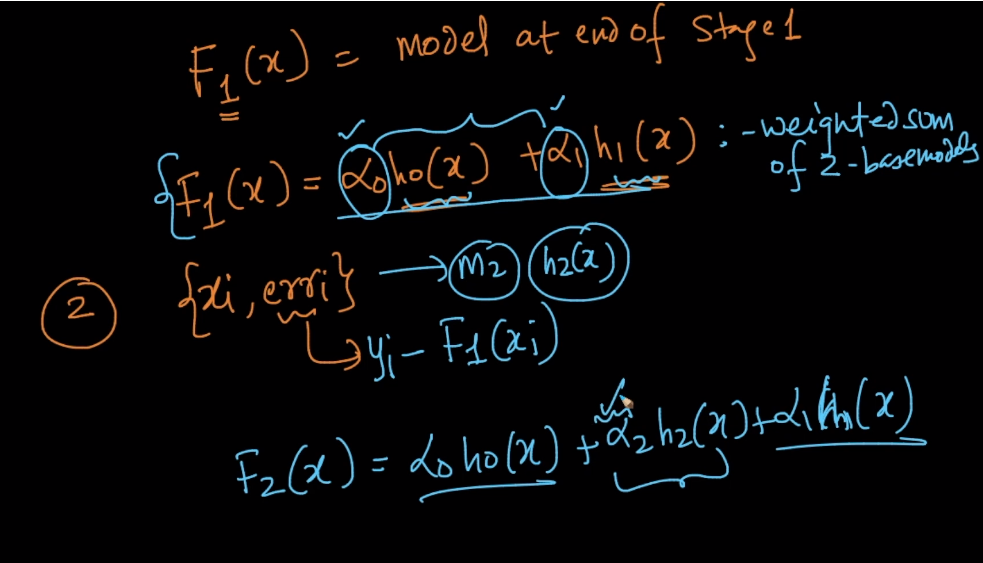 F₁(x) = model at end of Stage 1
F₁(x) = α₀h₀(x) + α₁h₁(x) : - weighted sum
of 2-basemodels
② {xi, erri} → M2 h2(x)
→ yi - F1(xi)
F₂(x) = α₀h₀(x) + α₂h₂(x) + α₁h₁(x)